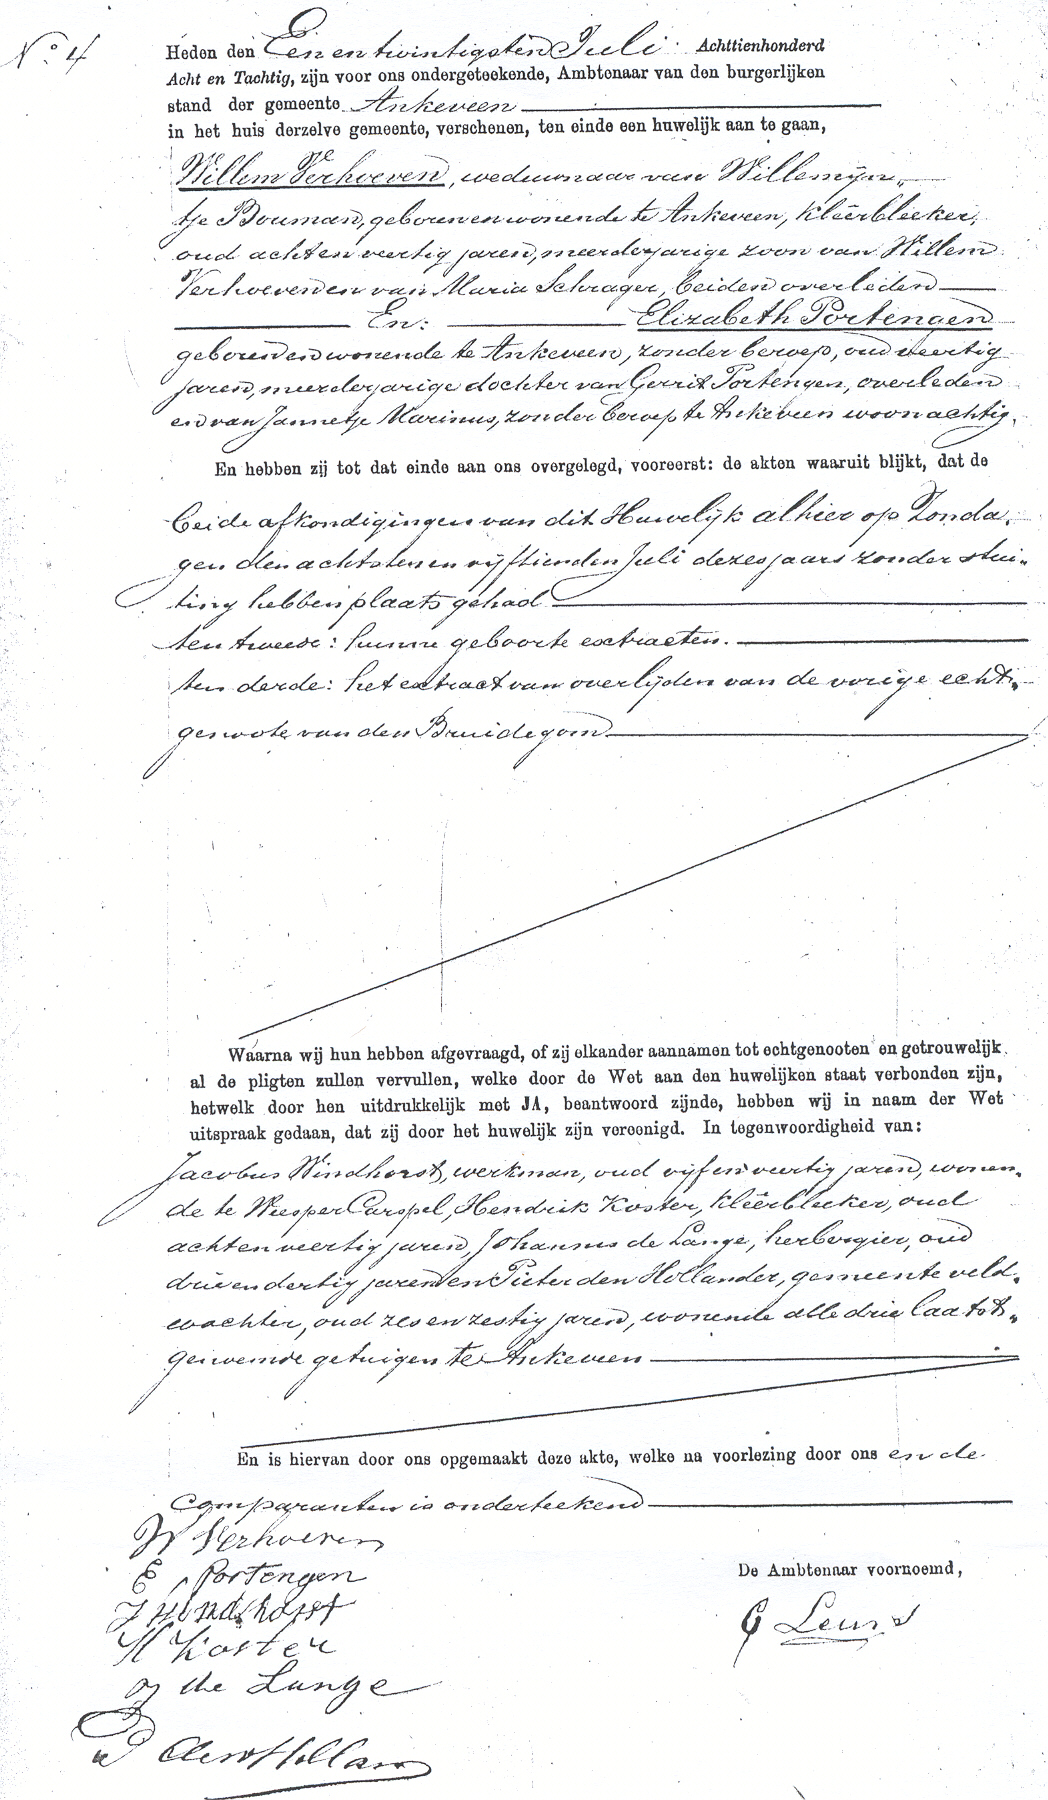 No. 4
Heden den Een en twintigsten Juli Achttienhonderd
Acht en Tachtig, zijn voor ons ondergeteekende, Ambtenaar van den burgerlijken
stand der gemeente Ankeveen
in het huis derzelve gemeente, verschenen, ten einde een huwelijk aan te gaan,
Willem Verhoeven, weduwnaar van Willemijn„
tje Bouman, geboren en wonende te Ankeveen, kleêrbleeker,
oud acht en veertig jaren, meerderjarige zoon van Willem
Verhoeven en van Maria Schrager, beiden overleden
En: Elizabeth Portengen
geboren en wonende te Ankeveen, zonder beroep, oud veertig
jaren, meerderjarige dochter van Gerrit Portengen, overleden
en van Jannetje Marinus, zonder beroep te Ankeveen woonachtig.
En hebben zij tot dat einde aan ons overgelegd, vooreerst: de akten waaruit blijkt, dat de
beide afkondigingen van dit Huwelijk alhier op Zonda„
gen den achtsten en vijftienden Juli dezes jaars zonder stui„
ting hebben plaats gehad
ten tweede: hunne geboorte extracten.
ten derde: het extract van overlijden van de vorige echt„
genoote van den Bruidegom
Waarna wij hun hebben afgevraagd, of zij elkander aannamen tot echtgenooten en getrouwelijk
al de pligten zullen vervullen, welke door de Wet aan den huwelijken staat verbonden zijn,
hetwelk door hen uitdrukkelijk met JA, beantwoord zijnde, hebben wij in naam der Wet
uitspraak gedaan, dat zij door het huwelijk zijn vereenigd. In tegenwoordigheid van:
Jacobus Windhorst, werkman, oud vijf en veertig jaren, wonen„
de te Weesper Carspel, Hendrik Koster, kleêrbleeker, oud
acht en veertig jaren, Johannes de Lange, herbergier, oud
drie en dertig jaren en Pieter den Hollander, gemeente veld„
wachter, oud zes en zestig jaren, wonende alle drie laatst„
genoemde getuigen te Ankeveen
En is hiervan door ons opgemaakt deze akte, welke na voorlezing door ons en de
Comparanten is onderteekend
W Verhoeven
E Portengen
De Ambtenaar voornoemd,
J Windhorst
G Leurs
H Koster
J de Lange
den Hollan